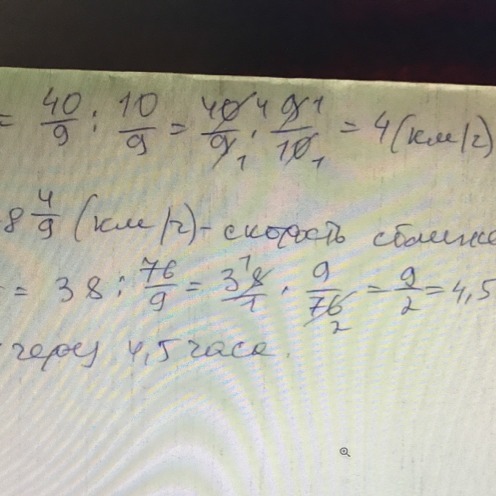 = 40/9 : 10/9 = 40/9 · 9/10 = 4 (км/ч)
8 4/9 (км/ч) - скорость сближе
= 38 : 76/9 = 38/1 · 9/76 = 9/2 = 4,5
через 4,5 часа.